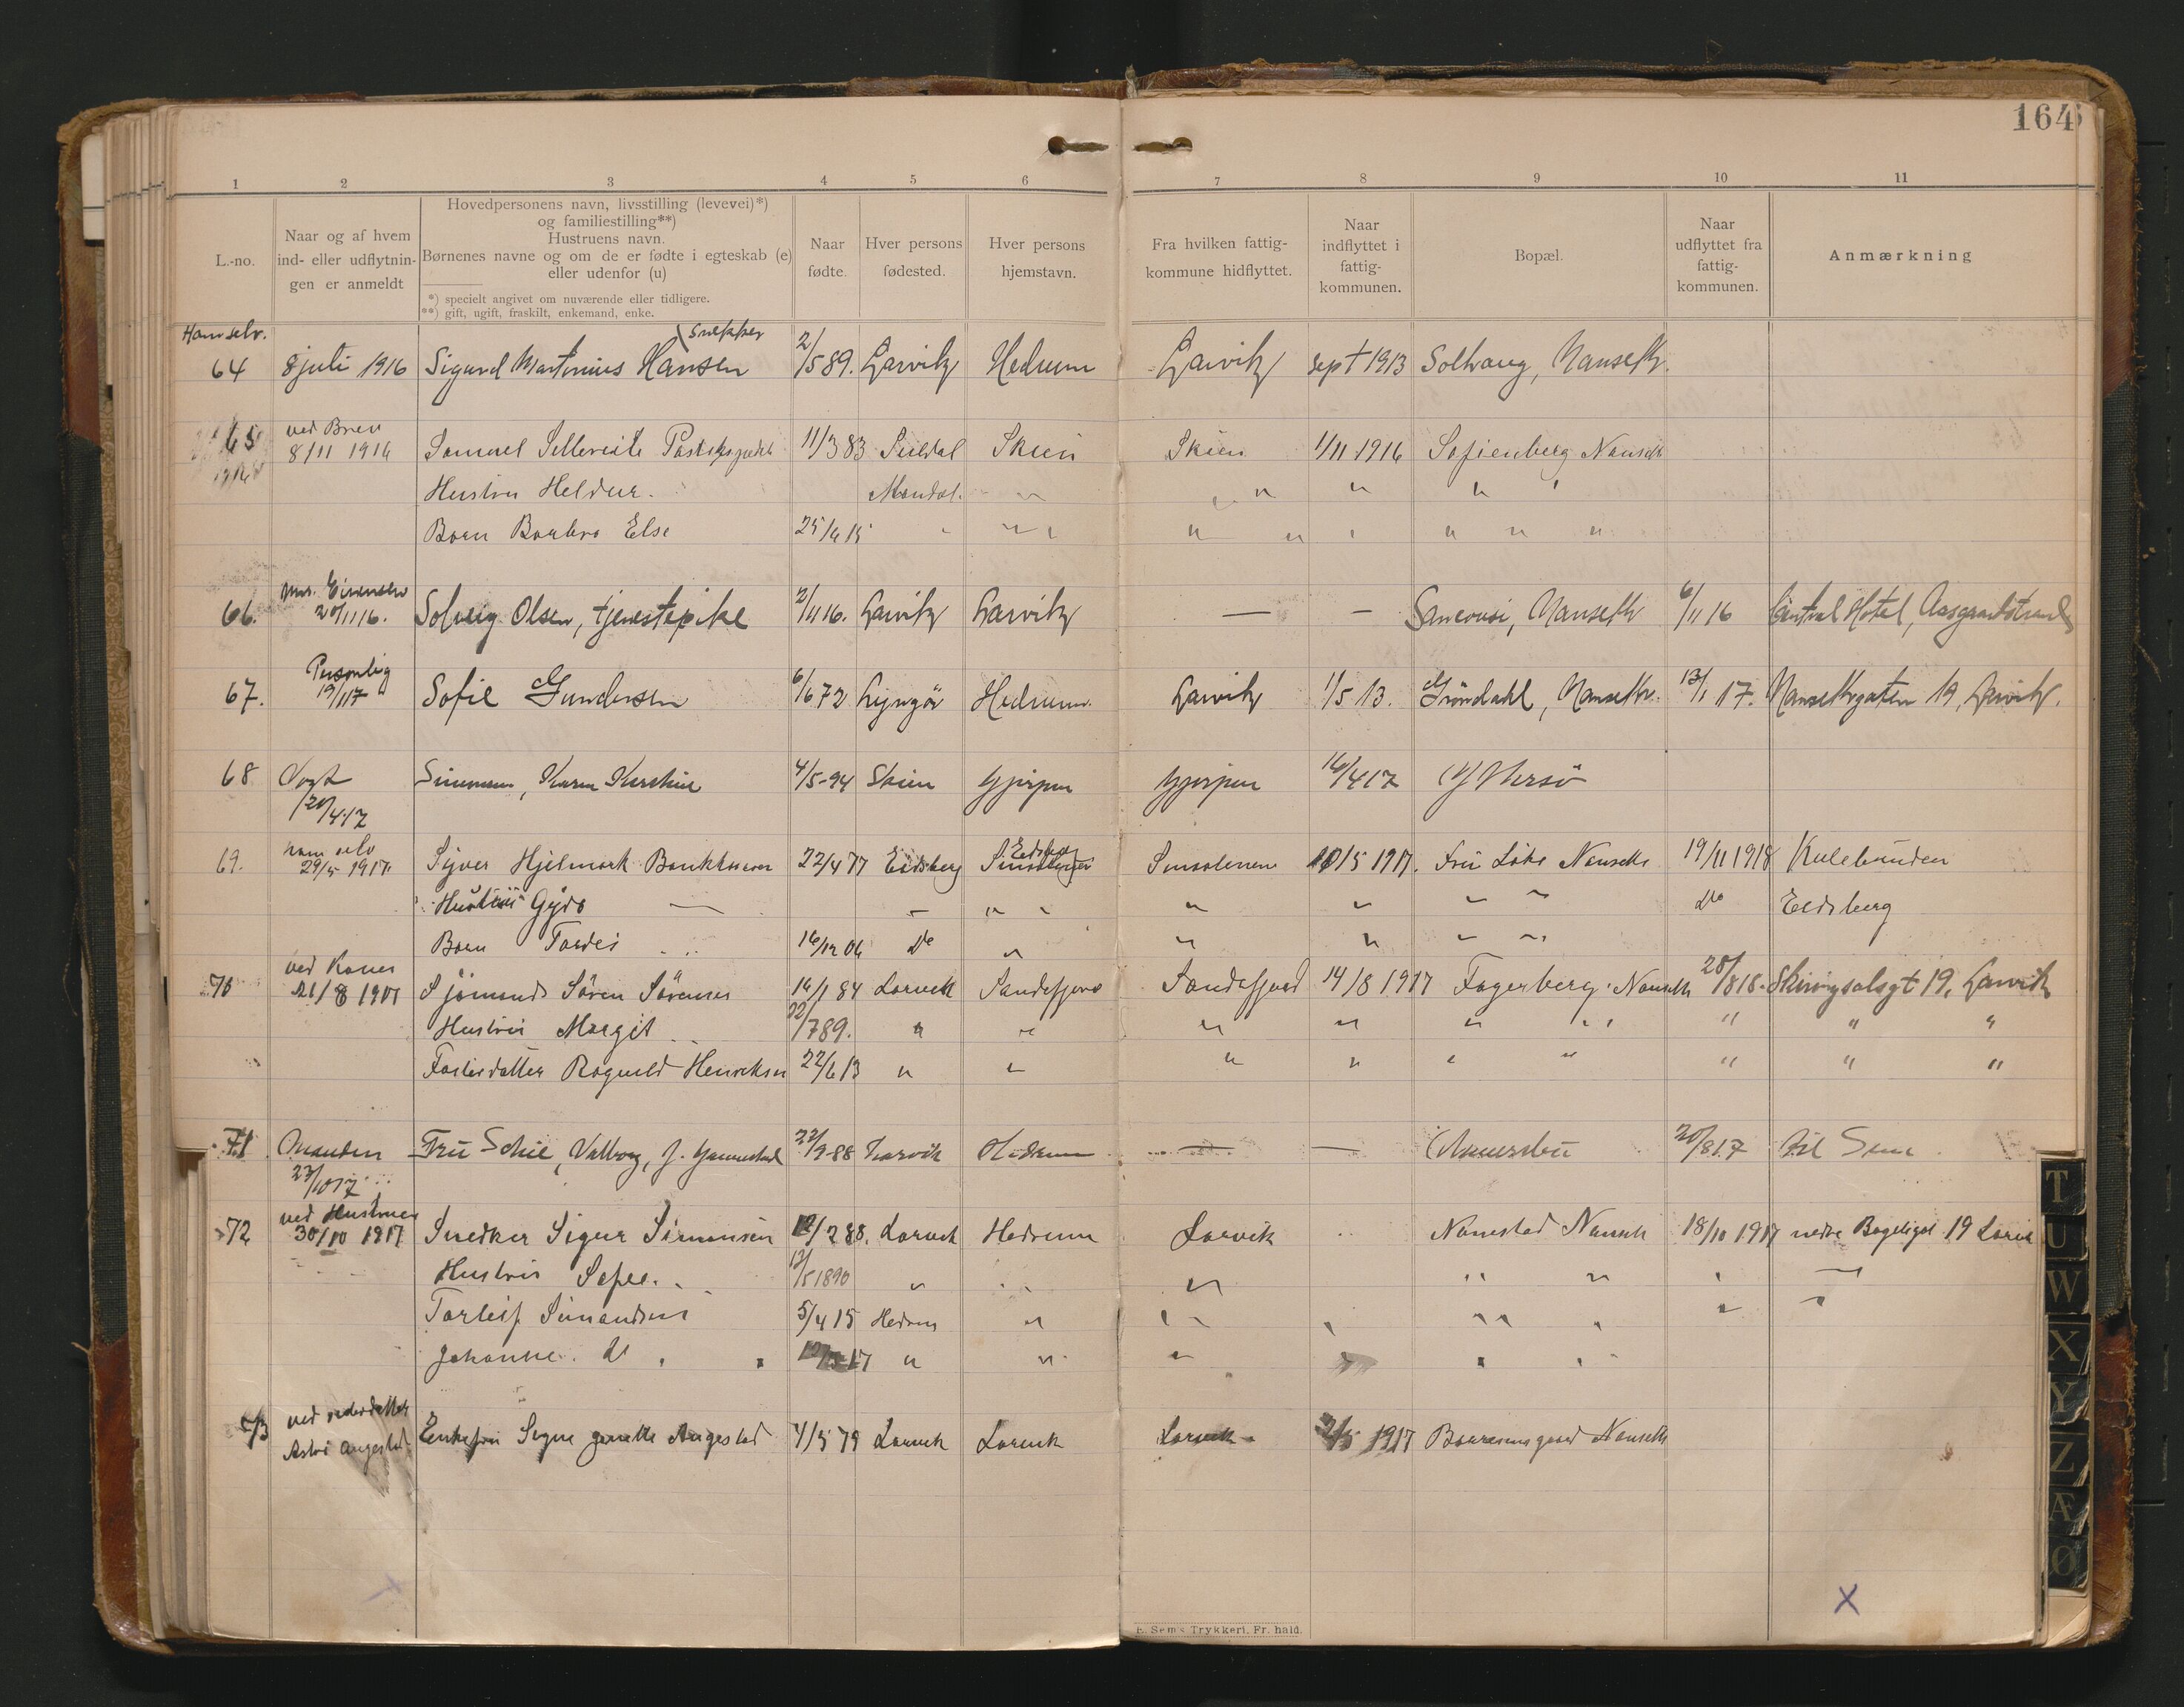 164
1 2 3 4 5 6 7 8 9 10 11
L.-no.
Naar og af hvem
ind- eller udflytnin-
gen er anmeldt
Hovedpersonens navn, livsstilling (levevei)*)
og familiestilling**)
Hustruens navn.
Børnenes navne og om de er fødte i egteskab (e)
eller udenfor (u)
*) specielt angivet om nuværende eller tidligere.
**) gift, ugift, fraskilt, enkemand, enke.
Naar
fødte.
Hver persons
fødested.
Hver persons
hjemstavn.
Fra hvilken fattig-
kommune hidflyttet.
Naar
indflyttet i
fattig-
kommunen.
Bopæl.
Naar
udflyttet fra
fattig-
kommunen.
Anmærkning
Ham selv. Snekker
64 8 juli 1916 Sigurd Martinius Hansen 2/5 89. Larvik Hedrum Larvik sept 1913 Solvang, Nanseth.
ved Brev
65 8/11 1916 Samuel 11/3 83 Suldal Skien Skien 1/11 1916 Sofienberg Nanseth
Hustru Mandal. " " " "
Barn Barbro Else 25/6 15 " " " " " " " "
66. 20/11 16. Solveig Olsen, tjenestepike 2/11 16. Larvik Larvik — — Sanssouci, Nanseth 6/11 16 Central Hotel, Aasgaardstrand
Personlig
67. 19/1 17 Sofie Gundersen 6/6 72 Lyngör Hedrum Larvik 1/5 13. Gröndahl, Nanseth. 13/1 17. Nansethgaten 19, Larvik.
68 Vogt Simonsen, Karen Kirstine 4/5-94 Skien Gjerpen Gjerpen 16/4 17 Y Hersö
20/4 17
ham selv Eidsberg
69. 29/5 1917. Syver Hjelmark 22/4 77 Eidsberg Smaalenene Smaalenene 10/5 1917. Fru Nanseth 19/11 1918
Hustru Gyda — " " " " " " do Eidsberg
Barn Tordis 16/12 06 do " " " " "
ved Konen
70 21/8 1917 Sjömand Sören Sörensen 16/1 84 Larvik Sandefjord Sandefjord 14/8 1917 Fagerberg Nanseth 28/8 18. Skiringsalsgt 19, Larvik
Hustru Margit 22/7 89. " " " " " " " " "
Fosterdatter Ragnild Henriksen 22/6 13 " " " " " " " " "
71 Manden Fru Schie, Valborg, f. 22/9-88 Larvik Hedrum — — 20/8 17 til Sem
23/10 17
ved Hustruen
72 30/10 1917 Snedker Sigur Simonsen 12/2 88. Larvik Hedrum Larvik Nanestad Nanseth 18/10 1917 nedre 19 Larvik
Hustru 13/5 1890 " " " " " " —
Torleif Simonsen 5/4 15 Hedrum " " " " " " "
Johanne do 17 " " " " "
ved
73 Enkefru Signe Angestad 4/5 79 Larvik Larvik Larvik 2/5 1917 Nanseth
E. Sem's Trykkeri, Fr. hald.
X
T
U
W
X
Y
Z
Æ
Ø